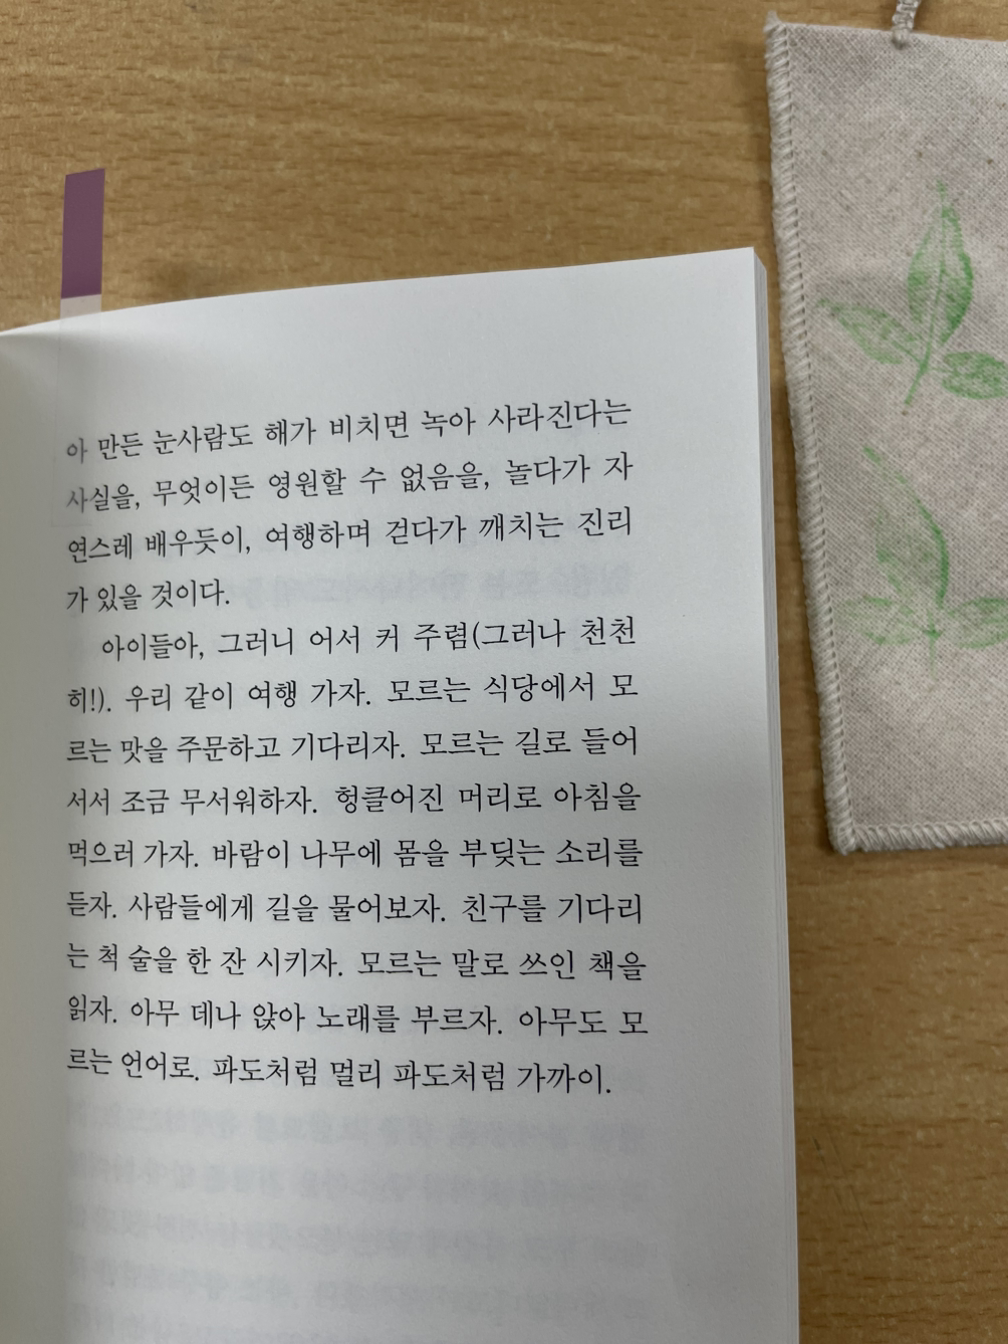 아 만든 눈사람도 해가 비치면 녹아 사라진다는
사실을, 무엇이든 영원할 수 없음을, 놀다가 자
연스레 배우듯이, 여행하며 걷다가 깨치는 진리
가 있을 것이다.
아이들아, 그러니 어서 커 주렴(그러나 천천
히!). 우리 같이 여행 가자. 모르는 식당에서 모
르는 맛을 주문하고 기다리자. 모르는 길로 들어
서서 조금 무서워하자. 헝클어진 머리로 아침을
먹으러 가자. 바람이 나무에 몸을 부딪는 소리를
듣자. 사람들에게 길을 물어보자. 친구를 기다리
는 척 술을 한 잔 시키자. 모르는 말로 쓰인 책을
읽자. 아무 데나 앉아 노래를 부르자. 아무도 모
르는 언어로. 파도처럼 멀리 파도처럼 가까이.